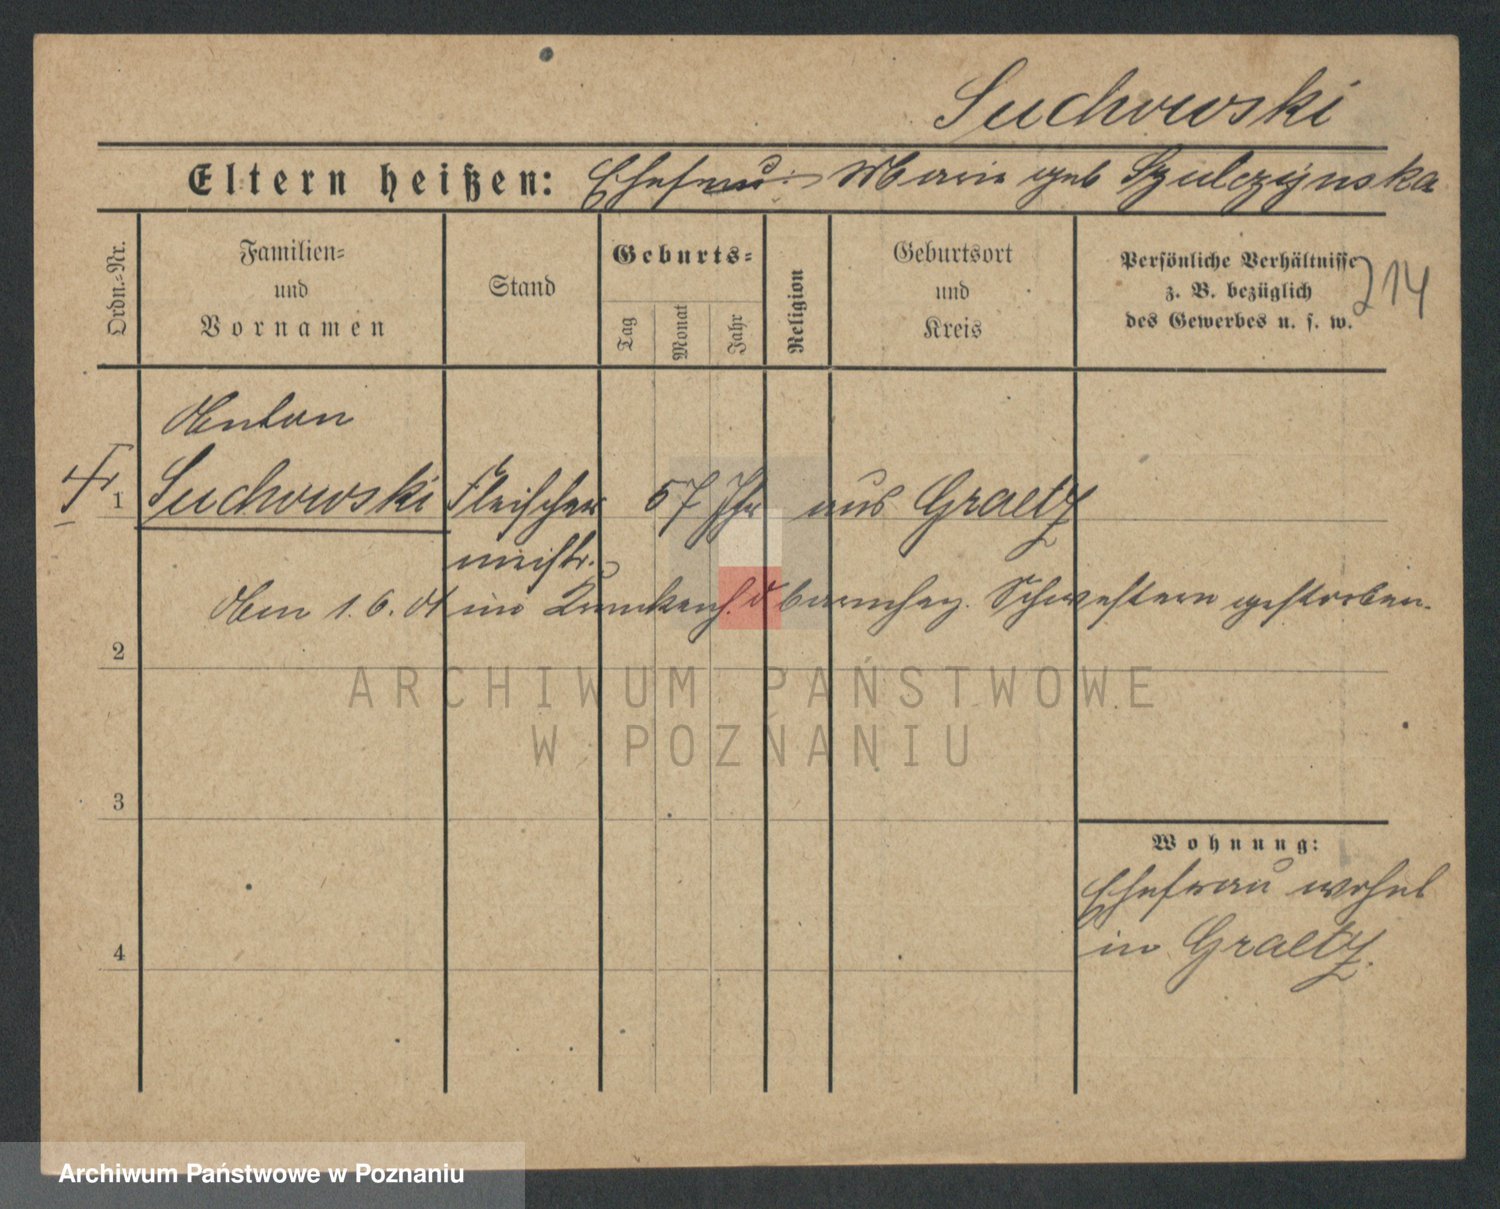 Suchowski
Eltern heißen: Ehefrau: Marie geb Szulczynska
Ordn.-Nr.
Familien-
und
Vornamen
Stand
Geburts-
Tag
Monat
Jahr
Religion
Geburtsort
und
Kreis
Persönliche Verhältnisse
z. B. bezüglich
des Gewerbes u. s. w.
214
Anton
1 Suchowski Fleischer 57 Jhr aus Graetz
meistr.
Am 1.6.01 im Krankenh. d barmherz. Schwestern gestorben.
2
ARCHIWUM PAŃSTWOWE
W POZNANIU
3
Wohnung:
Ehefrau wohnt
4 in Graetz.
Archiwum Państwowe w Poznaniu